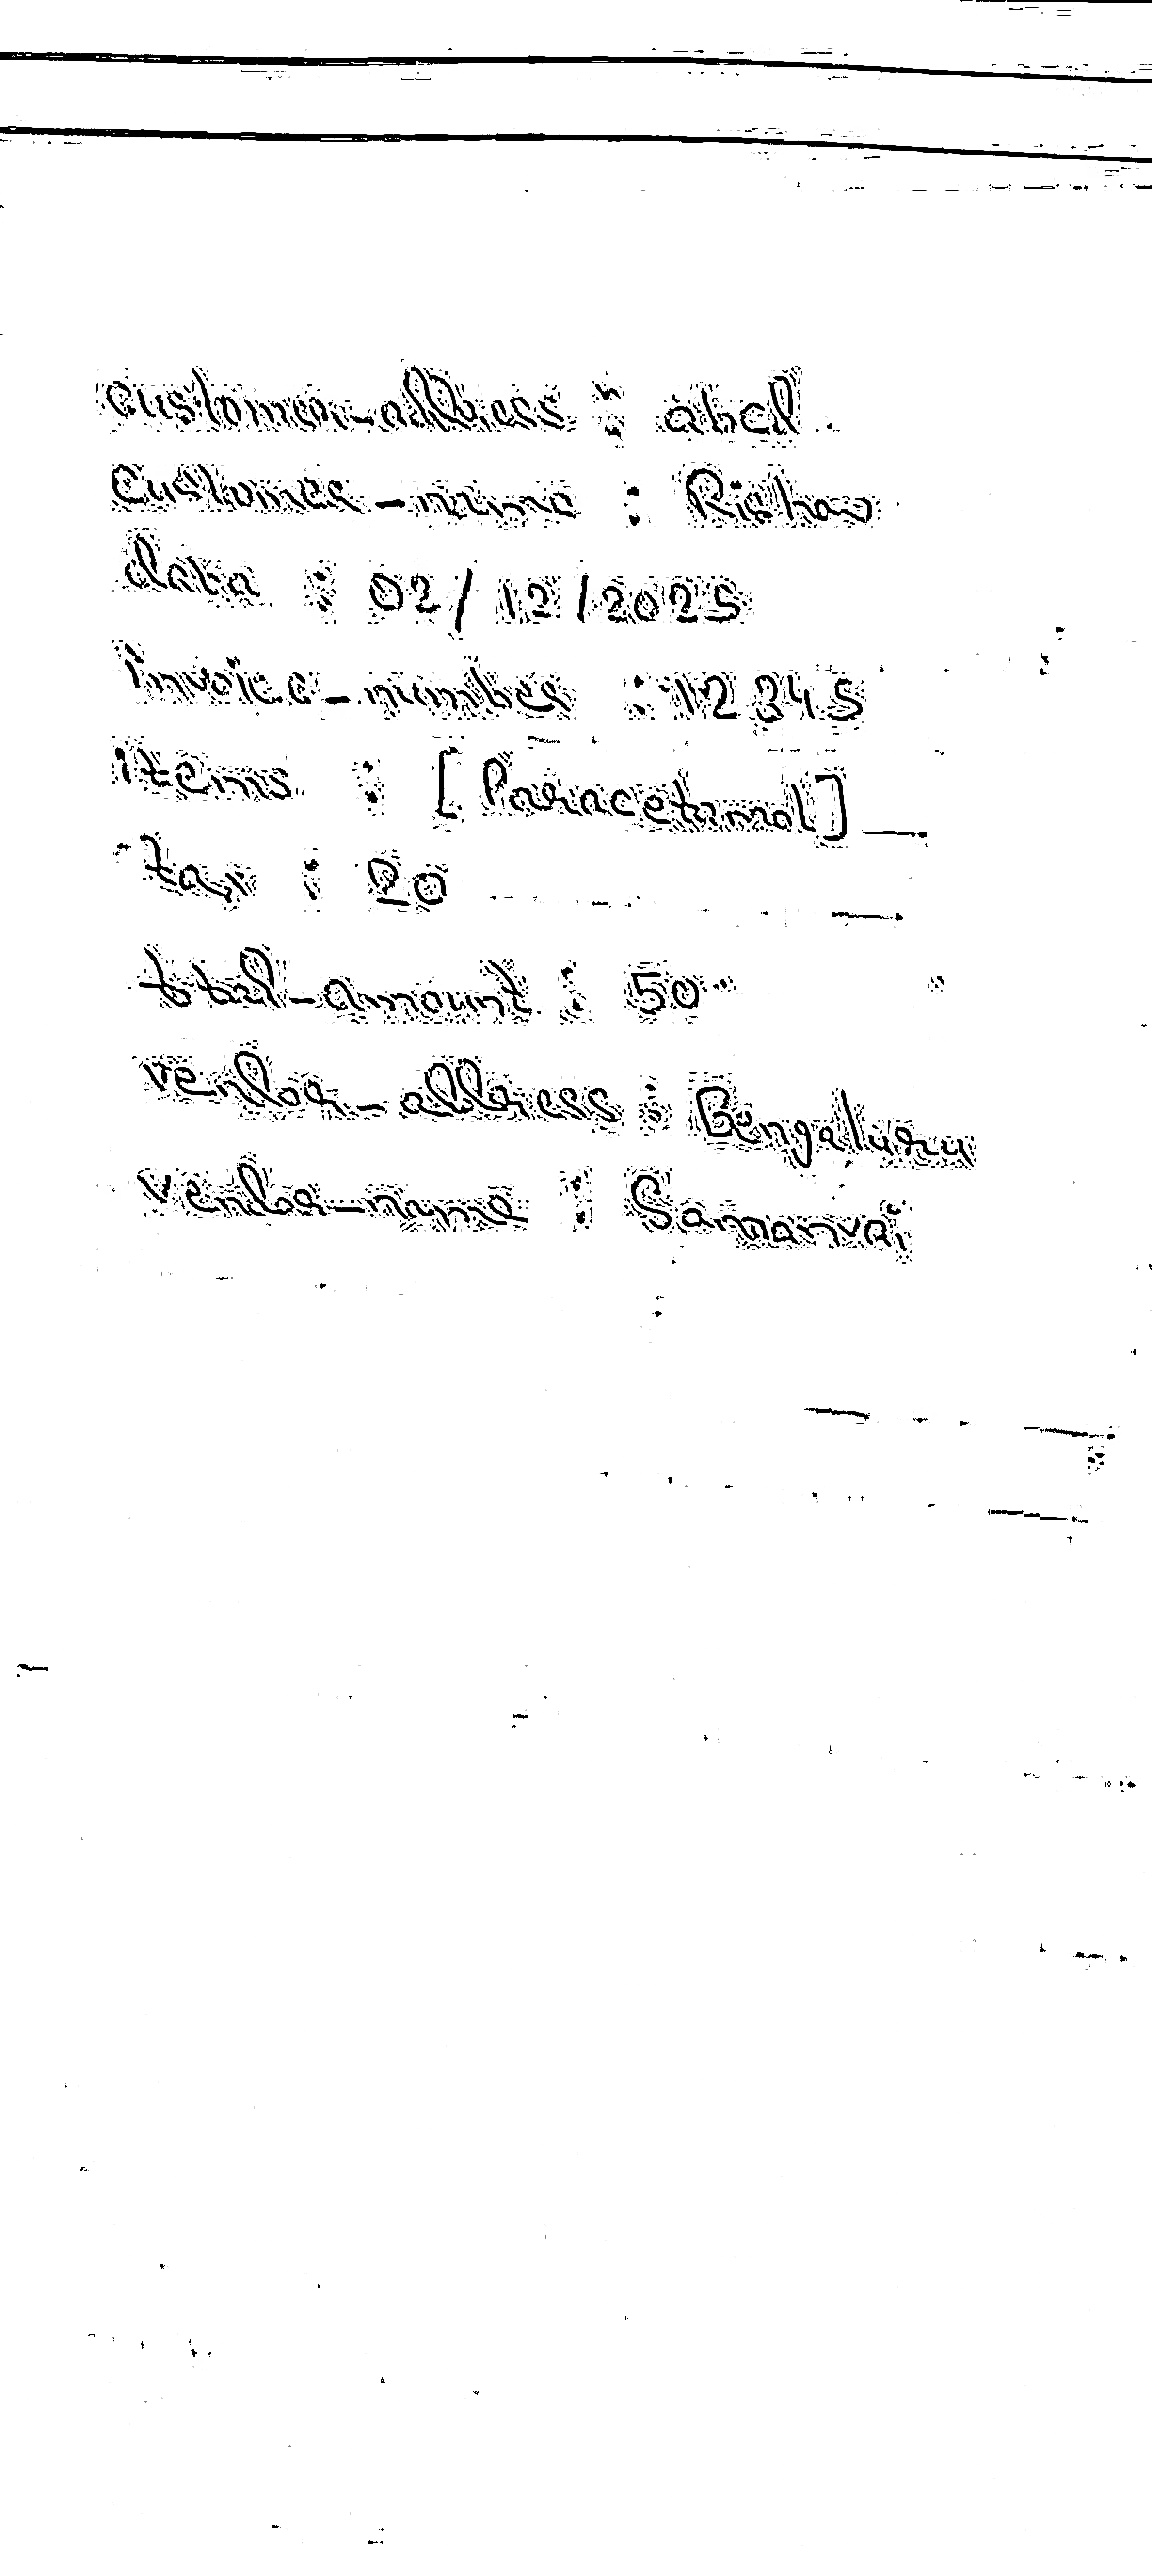 customer-address : abcd
Customer-name : Rishav
date : 02/12/2025
invoice-number : 12345
items : [Paracetamol]
tax : 20
total-amount : 50
vendor-address : Bengaluru
vendor-name :